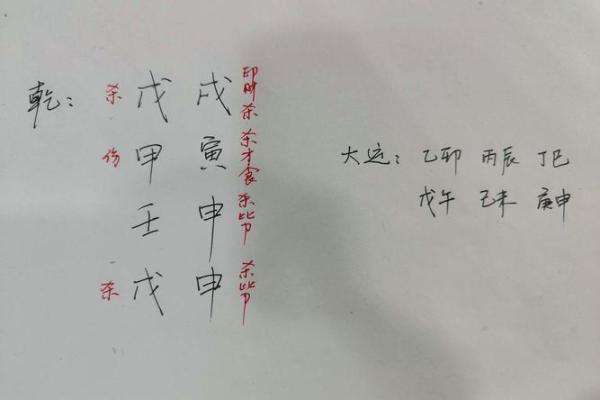 乾: 杀 戊 戌 印财杀
伤 甲 寅 杀才食
壬 申 杀比卩
杀 戊 申 杀比卩
大运: 乙卯 丙辰 丁巳
戊午 己未 庚申